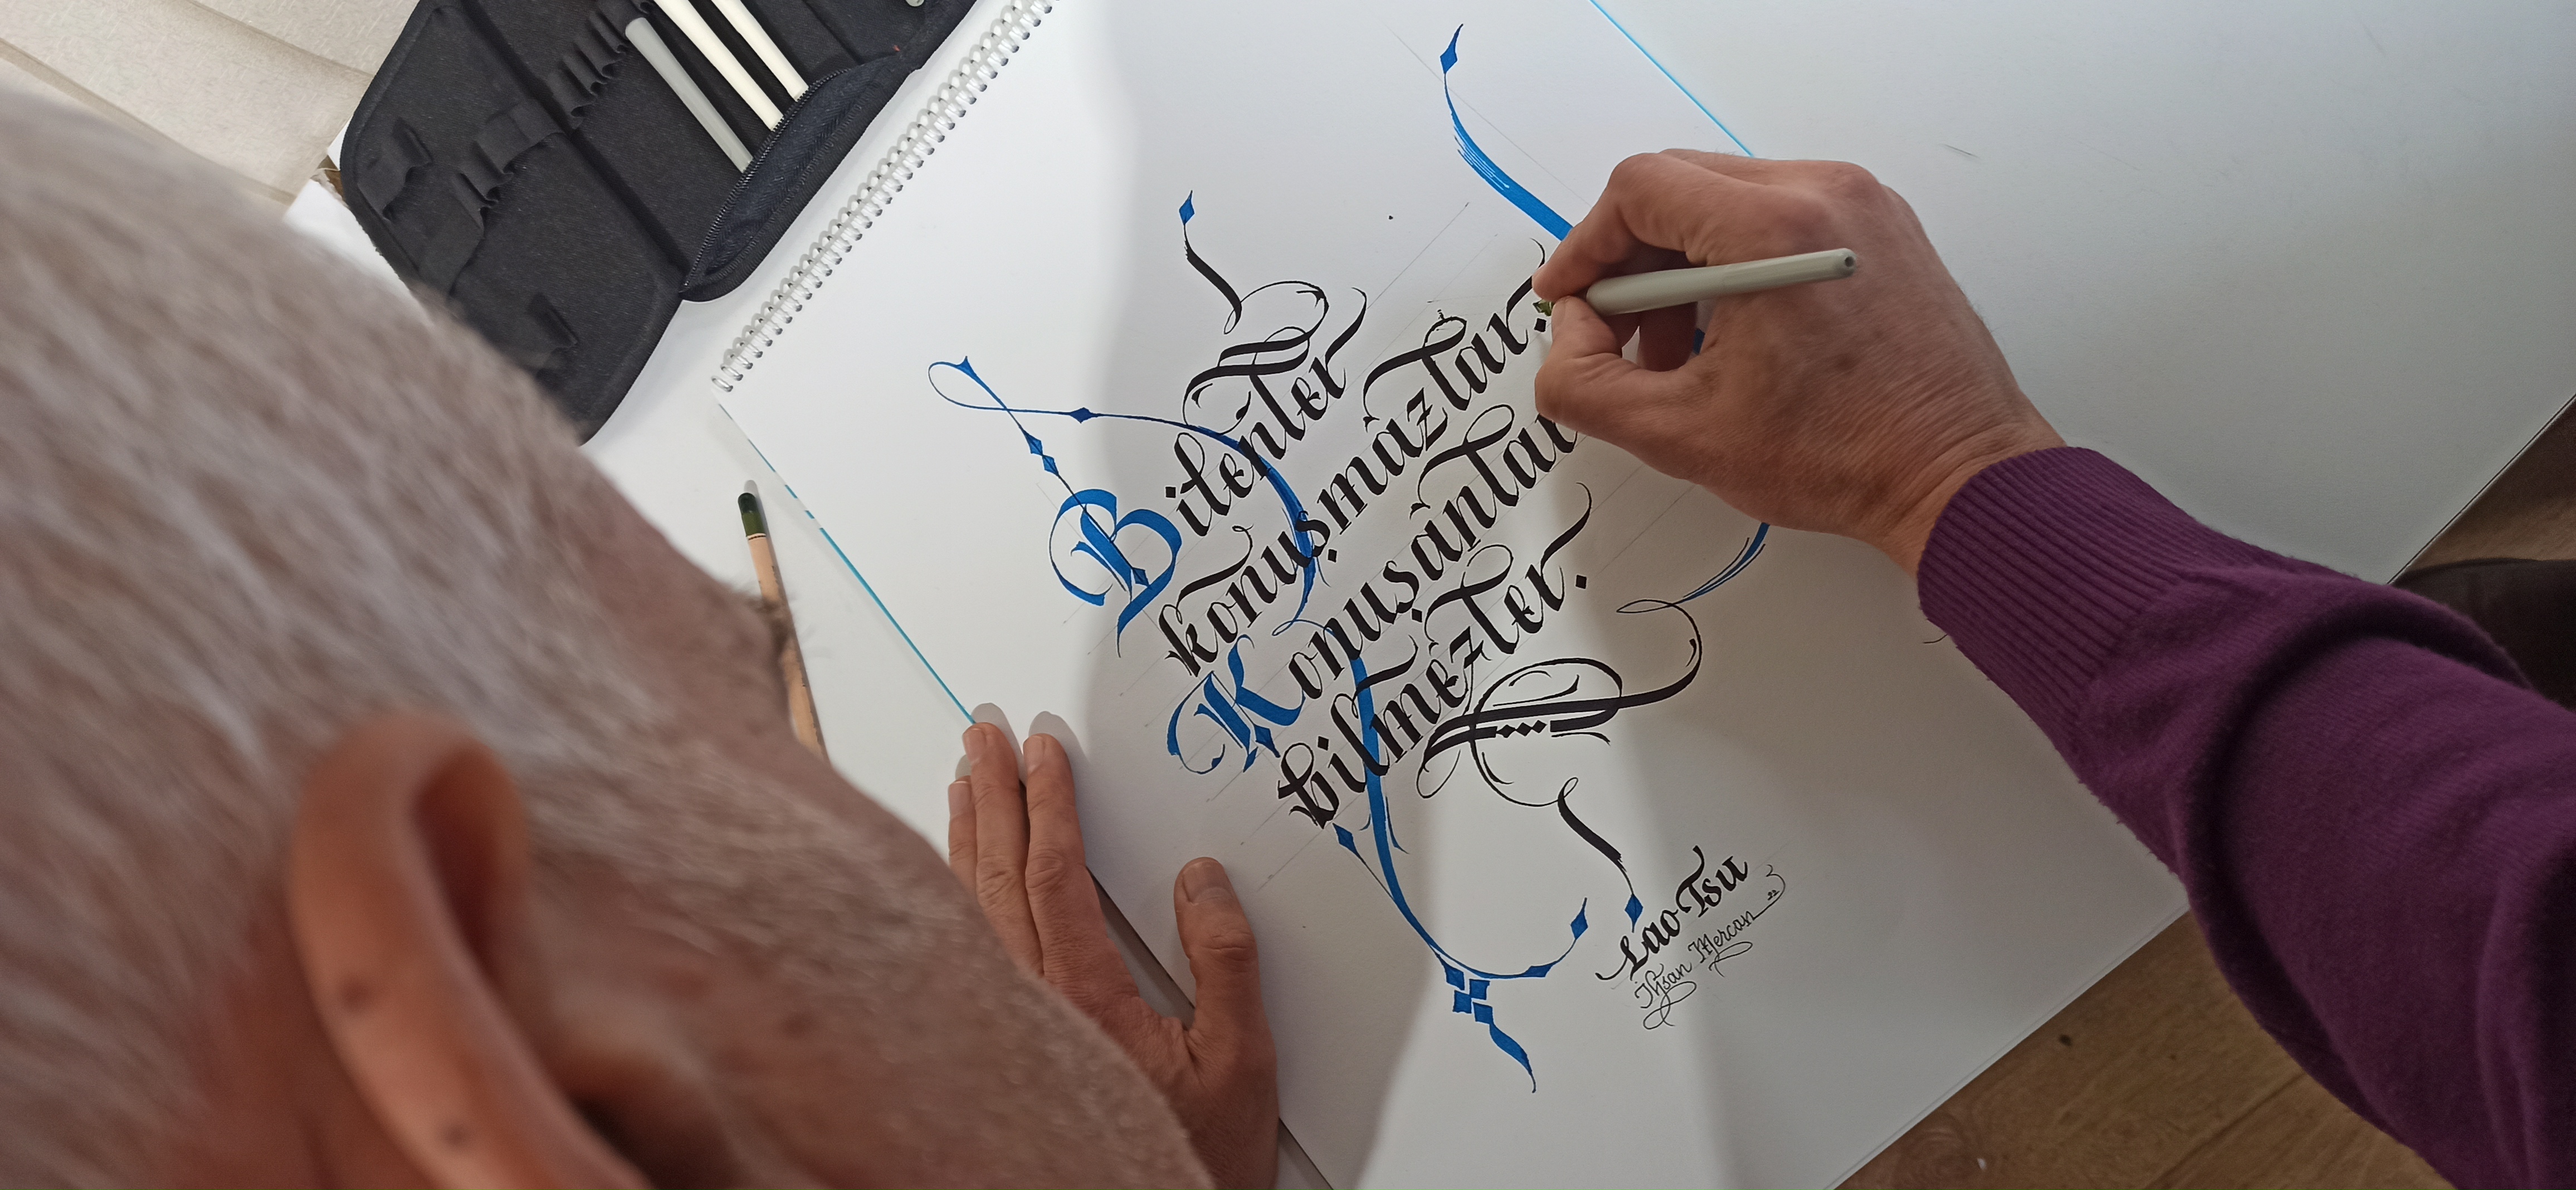 Bilenler
konuşmazlar.
Konuşanlar
bilmezler.
Lao-Tsu
İhsan Mercan